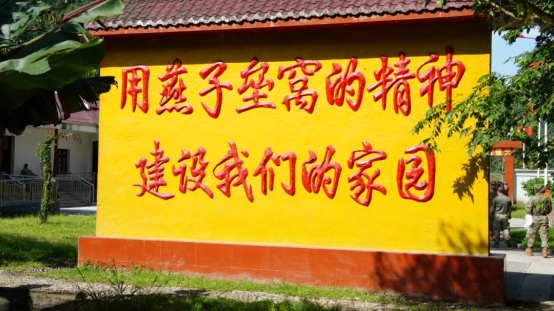 用燕子垒窝的精神
建设我们的家园